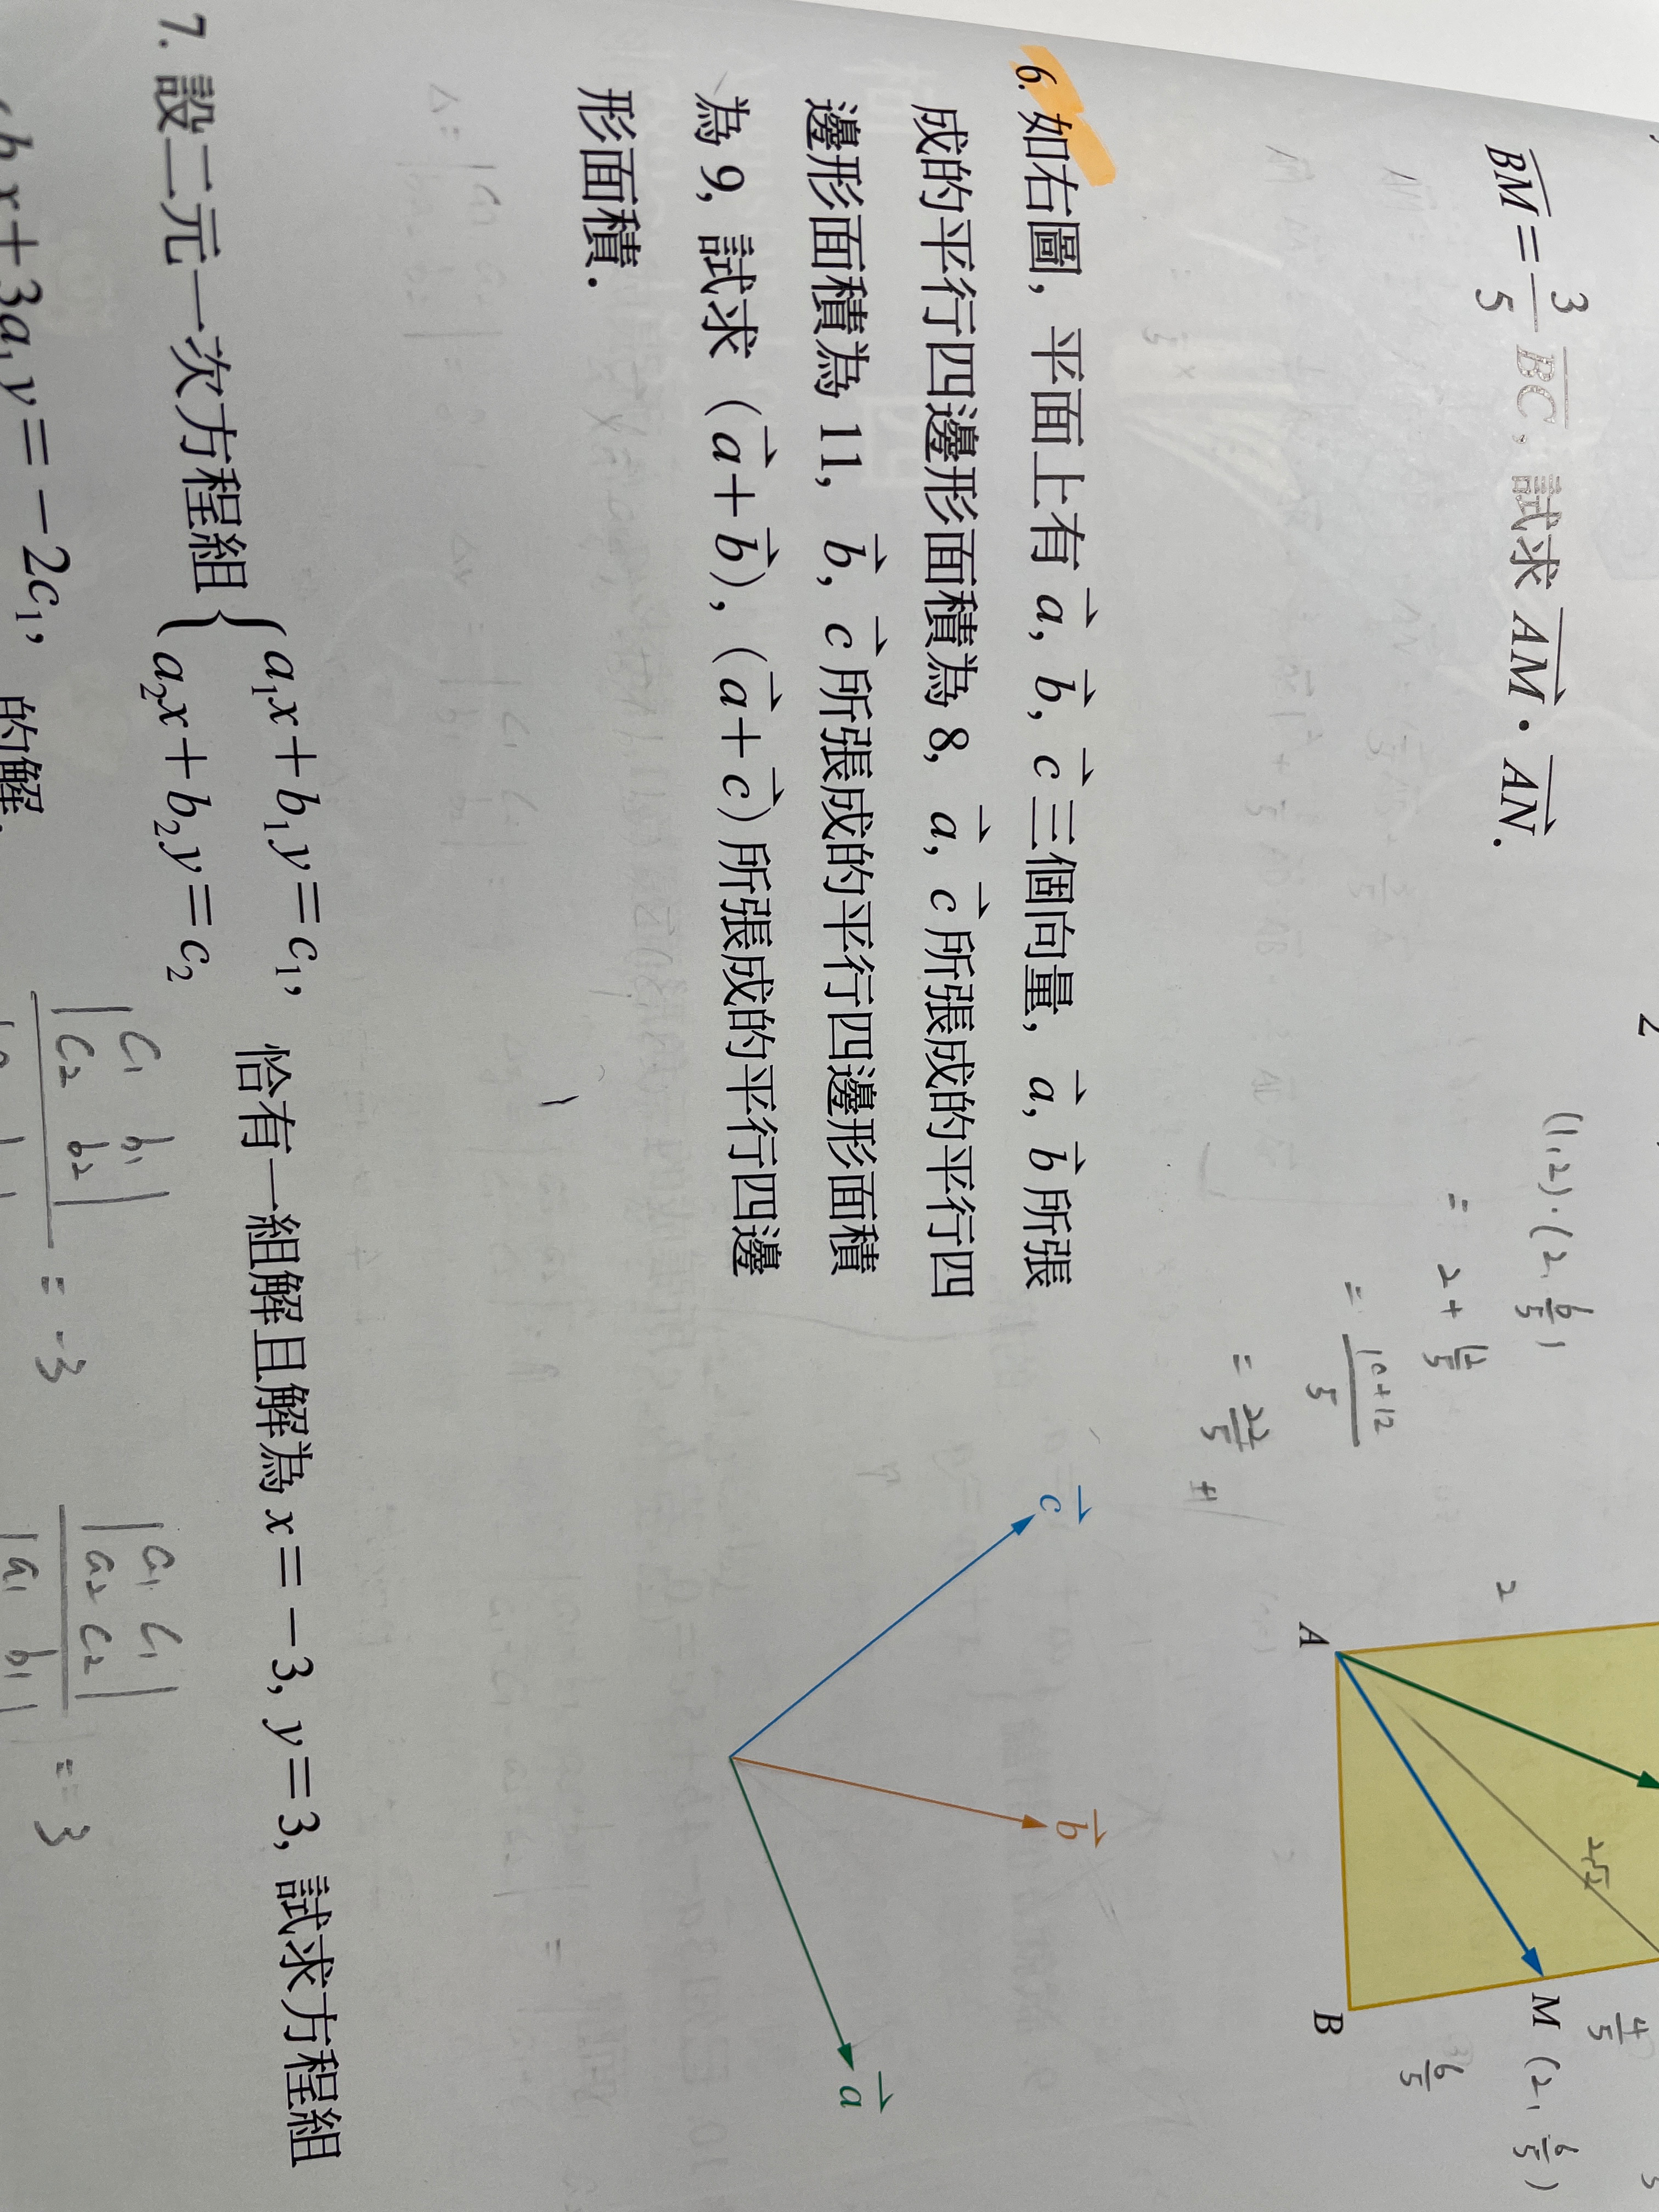 BM = 3/5 BC, 試求 AM · AN.
(1,2)·(2, 6/5)
= 2 + 12/5
= (10+12)/5
= 22/5
2
2√2
A
B
M (2, 6/5)
6. 如右圖, 平面上有 a, b, c 三個向量, a, b 所張
成的平行四邊形面積為 8, a, c 所張成的平行四
邊形面積為 11, b, c 所張成的平行四邊形面積
為 9, 試求 (a+b), (a+c) 所張成的平行四邊
形面積.
c
b
a
7. 設二元一次方程組 { a₁x+b₁y=c₁,
a₂x+b₂y=c₂
恰有一組解且解為 x=−3, y=3, 試求方程組
|c₁ b₁|
|c₂ b₂|
= -3
|a₁ c₁|
|a₂ c₂|
|a₁ b₁|
= 3
b₁x+3a₁y=−2c₁,
的解.